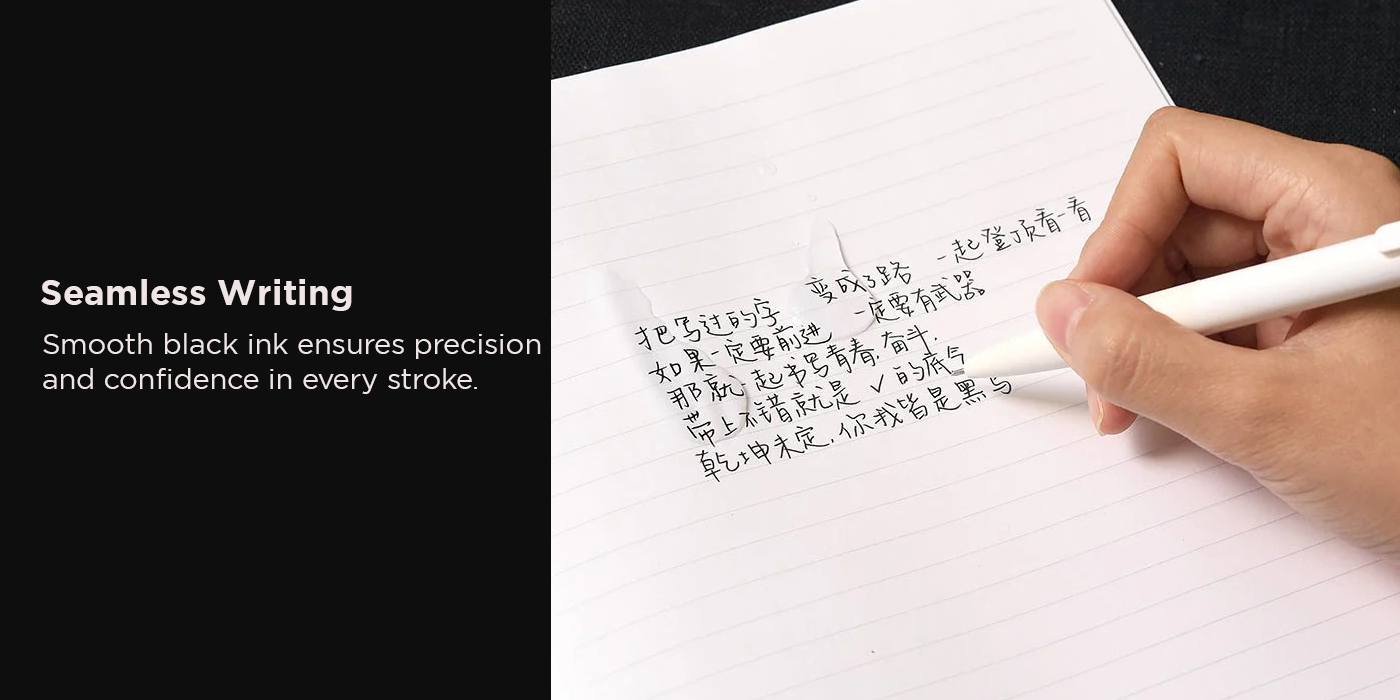 Seamless Writing
Smooth black ink ensures precision
and confidence in every stroke.
把写过的字 变成了路 一起登顶看一看
如果一定要前进 一定要有武器
那就一起书写青春,奋斗.
带上不错就是 ✓ 的底
乾坤未定,你我皆是黑